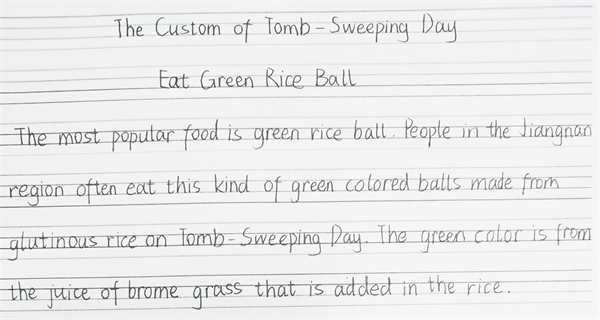 The Custom of Tomb-Sweeping Day
Eat Green Rice Ball
The most popular food is green rice ball. People in the Jiangnan
region often eat this kind of green colored balls made from
glutinous rice on Tomb-Sweeping Day. The green color is from
the juice of brome grass that is added in the rice.